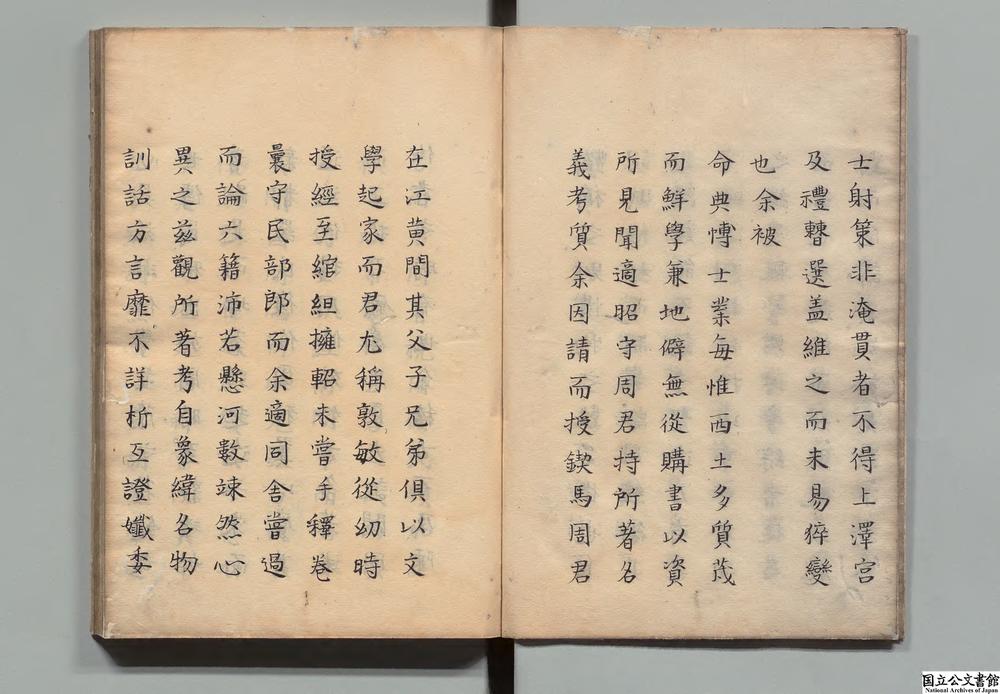 士射策非淹貫者不得上澤宮
及禮瞽選盖維之而未易猝變
也余被
命典博士業每惟西土多質茂
而鮮學兼地僻無從購書以資
所見聞適昭守周君持所著名
義考質余因請而授鍥焉周君
在江黄間其父子兄弟俱以文
學起家而君尤稱敦敏從幼時
授經至綰組擁軺未嘗手釋巻
曩守民部郎而余適同舍嘗過
而論六籍沛若懸河數竦然心
異之兹觀所著考自象緯名物
訓話方言靡不詳析互證孅委
国立公文書館
National Archives of Japan